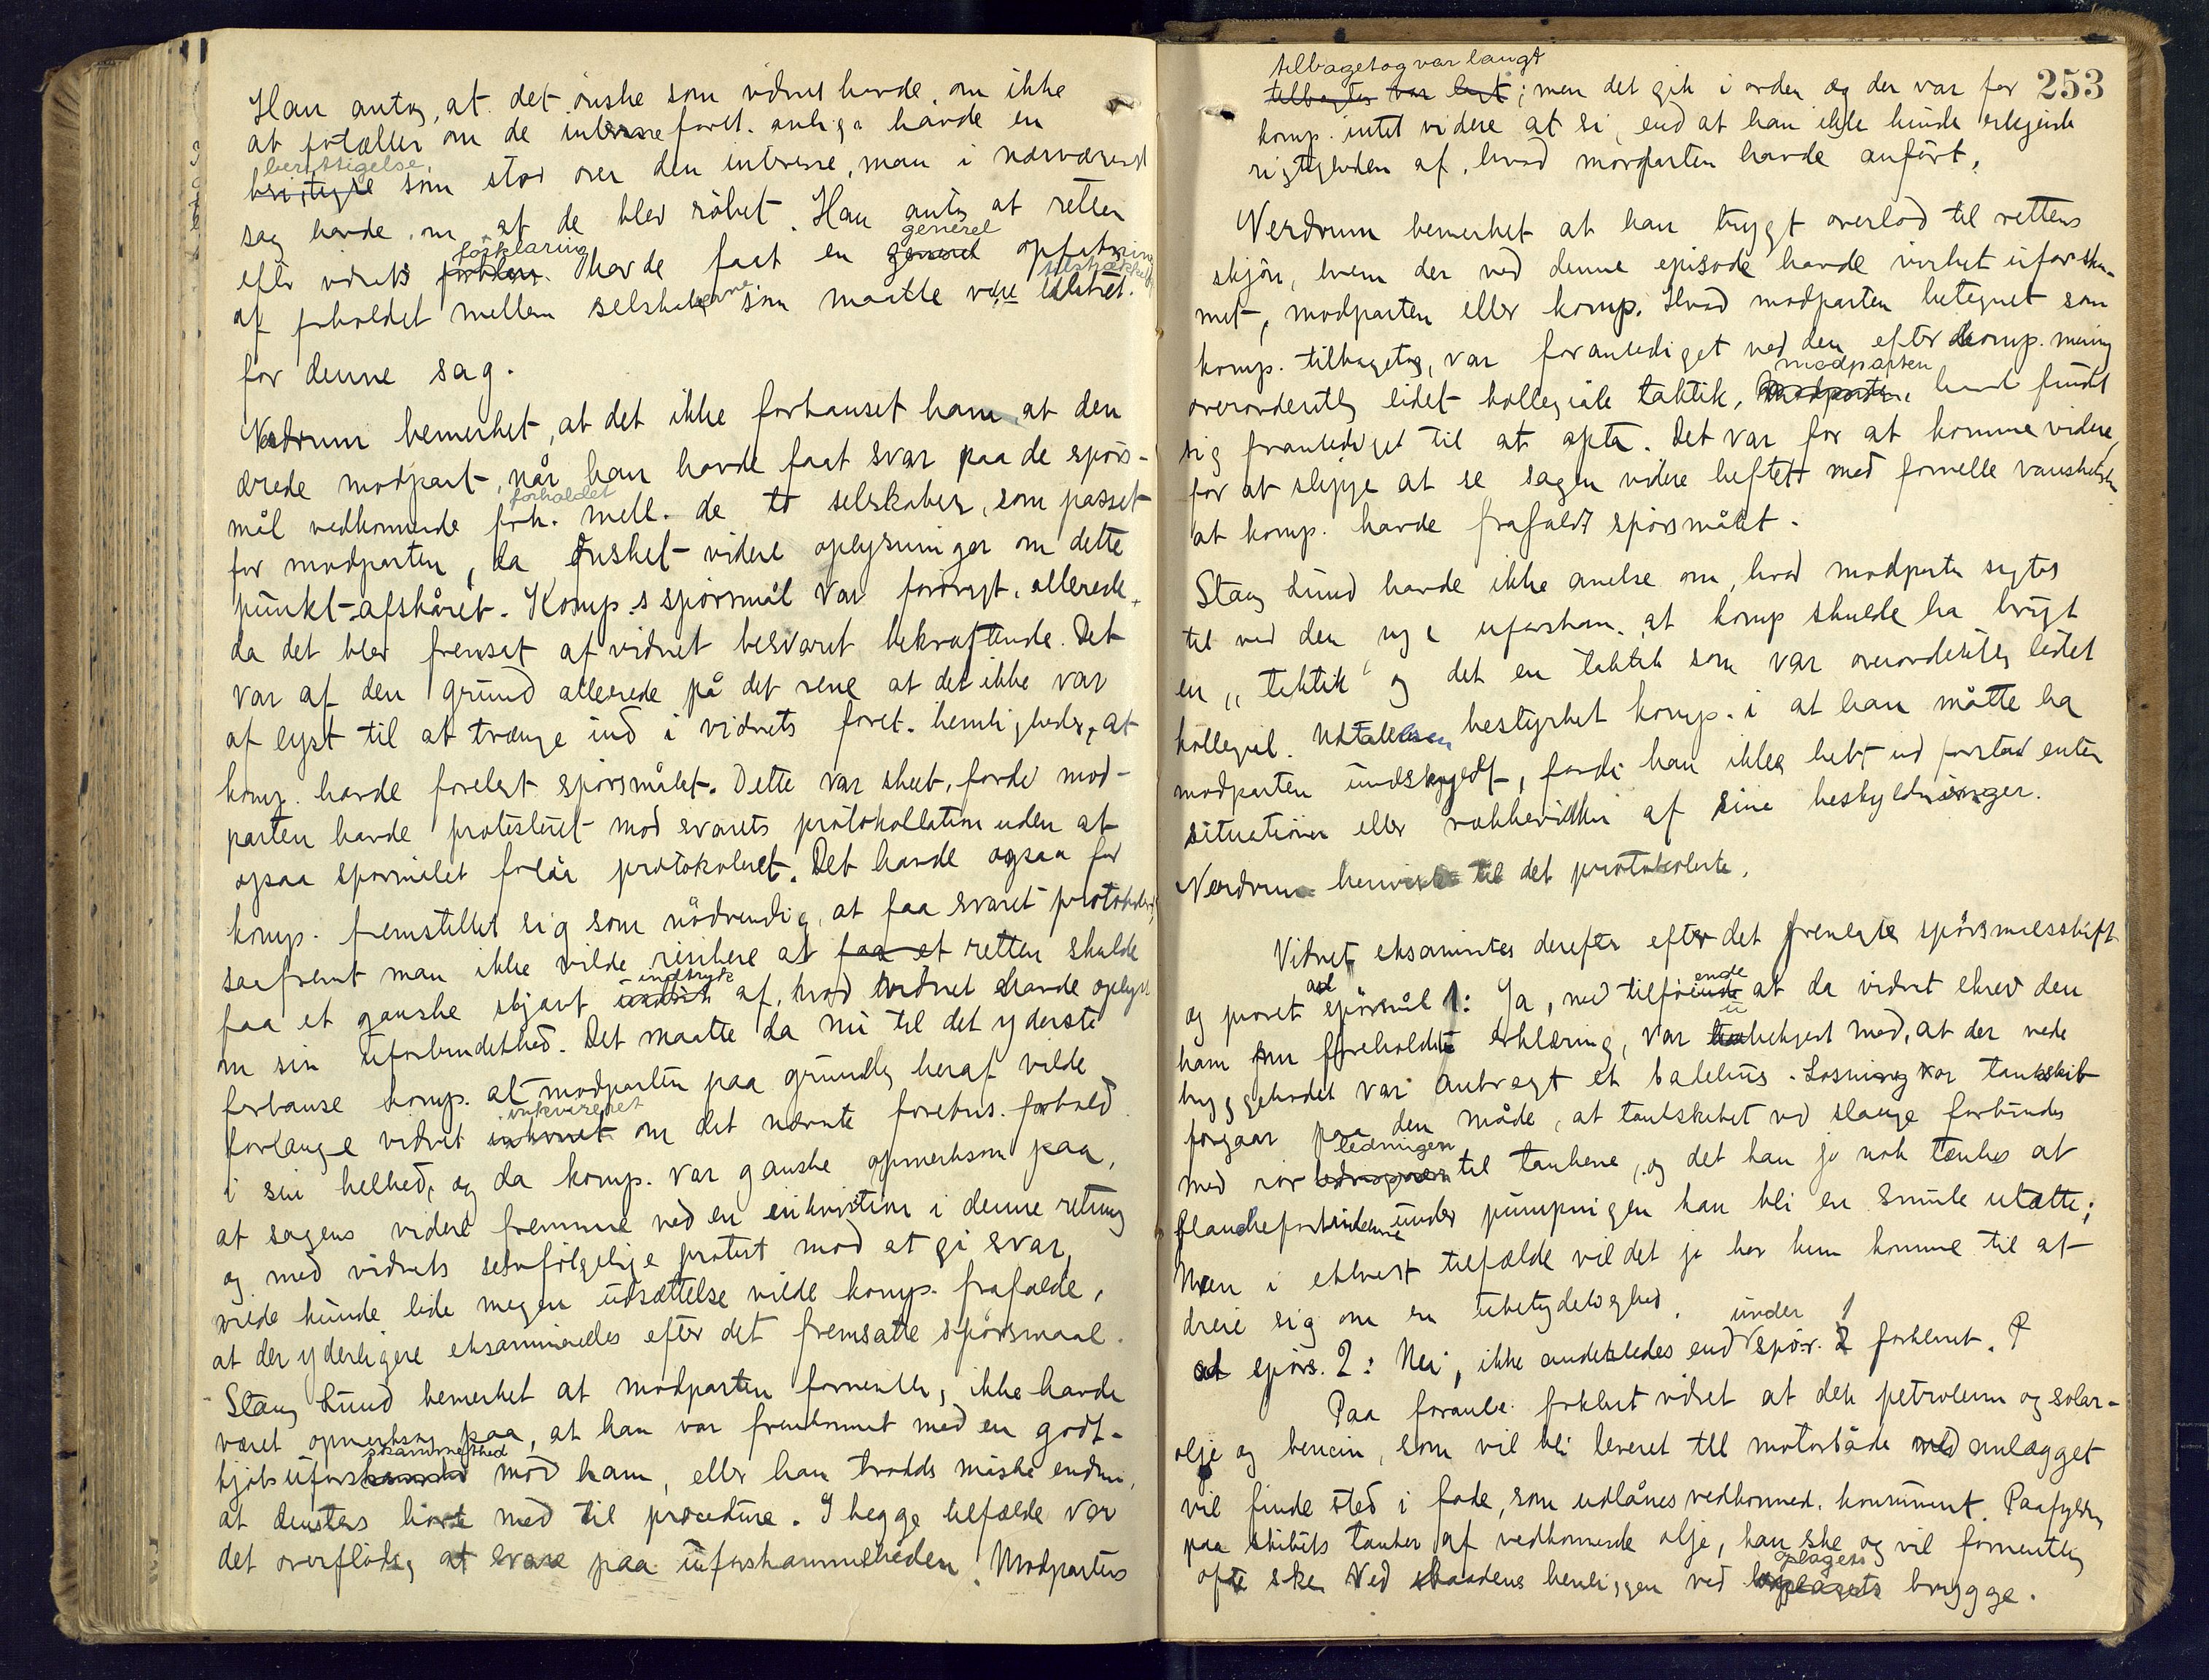 Han antog, at det ønske som vidnet havde, om ikke
at fortælle om de interne foret. anlig. havde en
berettigelse, som stod over den interesse, man i nærværende
sag havde, om at de blev røbet. Han antog at retten
efter vidnets forklaring havde faat en generel opfatning
af forholdet mellem selskaberne som maatte være tilstrækkelig
for denne sag.
Nerdrum bemerket, at det ikke forbauset ham at den
ærede modpart, når han havde faat svar paa de spørs-
mål vedkommende forholdet mell. de to selskaber, som passet
for modparten, da ønsket videre oplysninger om dette
punkt afskåret. Komp.s spørsmål var forøvrigt, allerede
da det blev fremsat af vidnet besvaret bekræftende. Det
var af den grund allerede på det rene at det ikke var
af lyst til at trænge ind i vidnets foret. hemligheder, at
komp. havde forelagt spørsmålet. Dette var skeet, fordi mod-
parten havde protesteret mod svarets protokollation uden at
ogsaa spørsmålet forlår protokoleret. Det havde ogsaa for
komp. fremstillet sig som nødvendig, at faa svaret protokolert,
saafremt man ikke vilde risikere at faa et retten skulde
faa et ganske skjævt indtryk af, hvad vidnet havde oplyst
om sin uforbundethed. Det maatte da nu til det yderste
forbause komp. at modparten paa grundlag heraf vilde
forlange vidnet inkvireret om det nævnte foretns. forhold
i sin helhed, og da komp. var ganske opmerksom paa,
at sagens videre fremme ved en inkvisition i denne retning
og med vidnets selvfølgelige protest mod at gi svar,
vilde kunde lide megen udsættelse vilde komp. frafalde,
at der yderligere eksamineredes efter det fremsatte spørsmaal.
Stang Lund bemerket at modparten formentlig ikke havde
været opmerksom paa, at han var fremkommet med en godt-
kjøbs uforskammethed mod ham, eller han trodde måske endnu,
at denslags hørte med til procedure. I begge tilfælde var
det overflødig at svare paa uforskammetheden. Modpartens
253
tilbagetog var langt
tilbagetog var langt; men det gik i orden og der var for
komp. intet videre at si, end at han ikke kunde erkjende
rigtigheden af, hvad modparten havde anført.
Nerdrum bemerket at han trygt overlod til rettens
skjøn, hvem der ved denne episode havde virket uforskam-
met, modparten eller komp. Hvad modparten betegnet som
komp. tilbagetog, var foranlediget ved den efter komp. mening
overordentlig lidet kollegiale taktik, modparten havde fundet
sig foranlediget til at opta. Det var for at komme videre,
for at slippe at se sagen videre heftet med formelle vanskeligheder
at komp. havde frafaldt spørsmålet.
Stang Lund havde ikke anelse om, hvad modparten sigtet
til ved den nye uforskam. at komp skulde ha brugt
en "taktik" og det en taktik som var overordentlig lidet
kollegial. Udtalelsen bestyrket komp. i at han måtte ha
modparten undskyldt, fordi han ikke helt ud forstod enten
situationen eller rækkevidden af sine beskyldninger.
Nerdrum henviste til det protokolerte.
Vidnet eksamineres derefter efter det fremlagte spørsmaalsskrift
og svaret ad spørsmål 1: Ja, med tilføiende at da vidnet skrev den
ham nu foreholdte erklæring, var ubekjent med, at der nede
bryggehodet var anbragt et badehus. Losning var tankskib
foregaar paa den måde, at tankskibet ved slange forbindes
med rør ledningen til tankene, og det kan jo nok tænkes at
flancheforbindelserne under pumpningen kan bli en smule utætte;
Men i ethvert tilfælde vil det jo her kun komme til at
dreie sig om en ubetydelighed.
ad spørs. 2: Nei, ikke anderledes end under spør. 1 forklaret.
Paa foranl. forklart vidnet at den petroleum og solar-
olje og bencin, som vil bli leveret til motorbåde ved anlægget
vil finde sted i fade, som udlånes vedkommed. konsument. Paafylding
paa skibets tanker af vedkommende olje, kan ske og vil formentlig
ofte ske ved baadens henliggen ved oplagets brygge.